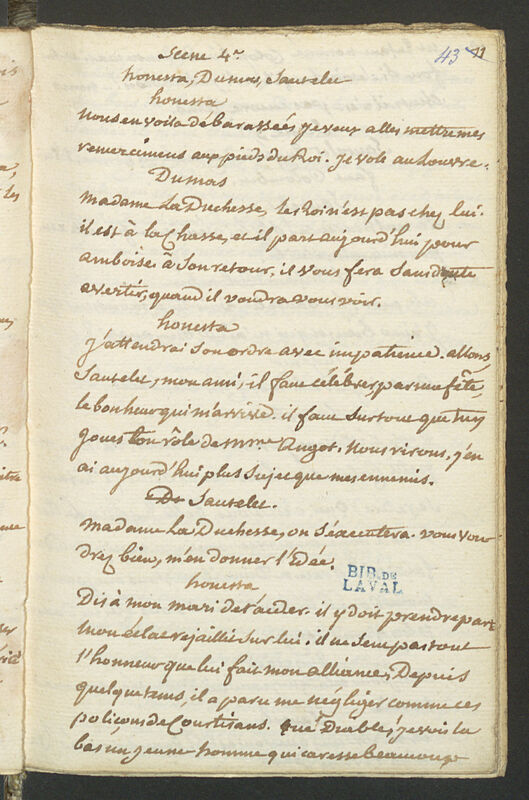 43 11
Scene 4e
honesta, Dumas, Sautelet
honesta
Nous en voila débarassées je veux aller mettre mes
remercimens aux pieds du Roi. je vole au Louvre.
Dumas
Madame La Duchesse, le Roi n'est pas chez lui.
il est à la Chasse, et il part aujourd'hui pour
amboise à son retour, il vous fera sans doute
avertir, quand il voudra vous voir.
honesta
j'attendrai son ordre avec impatience. allons,
Sautelet, mon ami, il faut célébrer, par une fête,
le bonheur qui m'arrive. il faut surtout que tu y
joues ton rôle de mme Angot. Nous rirons, j'en
ai aujourd'hui plus sujet que mes ennemis.
Du Sautelet.
Madame La Duchesse, on s'éxécutera. vous vou
drez bien, m'en donner l'idée.
honesta
Dis à mon mari de t'aider. il y doit prendre part
mon éclat rejaillit sur lui. il ne sent pas tout
l'honneur que lui fait mon alliance, Depuis
quelque tems, il a paru me négliger comme ces
poliçons de Courtisans. que Diable, je vois la
bas un jeune homme qui caresse beaucoup
BIB. DE
LAVAL